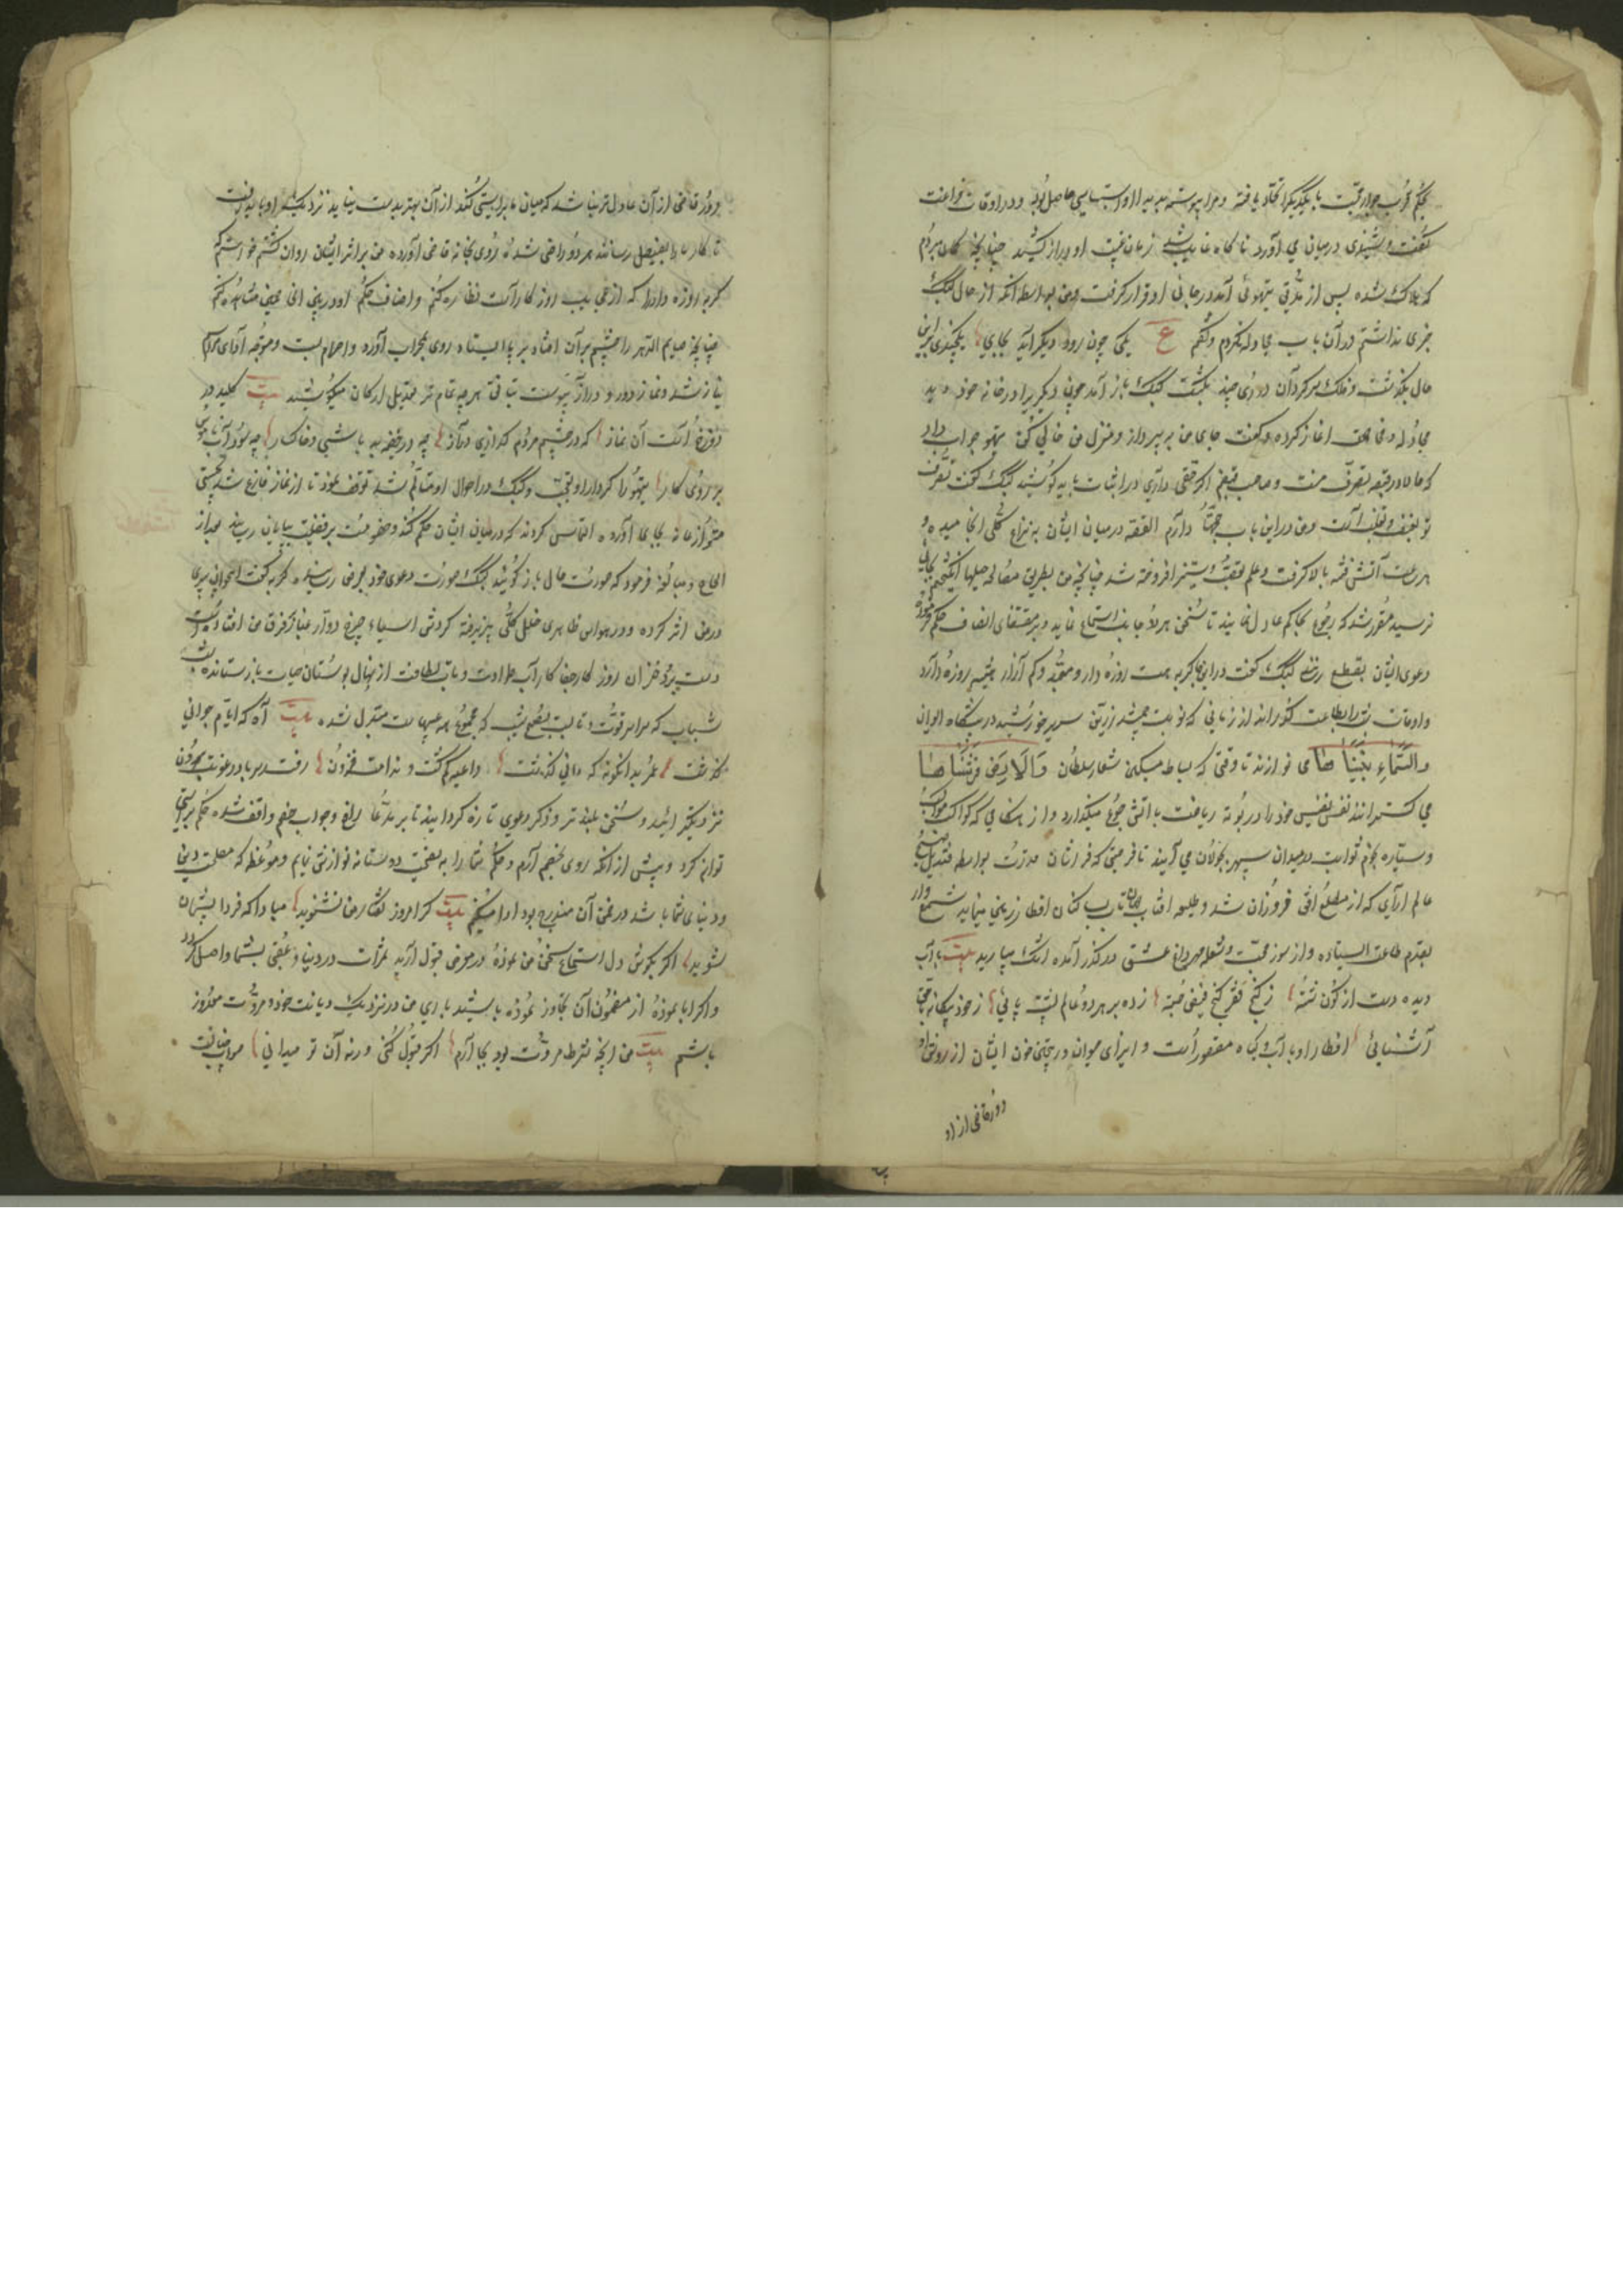 بحکم قرب جوار محبت با یکدیگر اتحاد یافته و مرا پیوسته بدیدار او استیناسی حاصل بود و در اوقات فراغت
بگفت و شنیدی در میان می آورد ناگاه غایب شد و زمان غیبت او دراز کشید چنانچه گمان بردم
که هلاک شده پس از مدتی تیهوئی آمد در جای او قرار گرفت و من بواسطه آنکه از حال کبک
خبری نداشتم در آن باب مجادله نکردم و گفتم ع یکی چون رود دیگر آید بجای یکچندی برین
حال بگذشت و فلک بر کرد آن دوری چند بگشت کبک باز آمد چون دیگری را در خانه خود دید
مجادله و مناقشه آغاز کرده و گفت جای من بپرداز و منزل من خالی کن تیهو جواب داد
که حالا در قبضه تصرف منست و صاحب قبضم اگر حقی داری در اثبات باید کوشید کبک گفت تصرف
تو بغصب و تغلب است و من در این باب حجتها دارم القصه در میان ایشان به نزاع کلی انجامید و
هر ساعت آتش فتنه بالا گرفت و علم تعصب و ستیز افروخته شد چنانچه من بطریق مصالحه حیلها انگیختم بجائی
نرسید مقرر شد که رجوع بحاکم عادل نمایند تا سخن هر دو جانب استماع نماید و بر مقتضای انصاف حکم فرموده
دعوی ایشان بقطع رساند کبک گفت در این نزدیکی گربه هست روزه دار و متعبد و کم آزار همیشه روزه دارد
و اوقات شب را بطاعت گذراند از زمانی که نوبت جمشید زرین سریر خورشید در پیشگاه ایوان
والسماء بنیناها می نوازند تا وقتی که بساط مسکین شعار سلطان والارض فرشناها
می گسترانند نفس نفیس خود را در بوته ریاضت باتش جوع میگدازد و از هنگامی که کواکب مواکب
و ستاره نجوم ثوابت در میدان سپهر بجولان می آیند تا فرصتی که فراشان قدرت بواسطه قندیل صبح
عالم آرای که از مطلع افق فروزان شد و طلیعه آفتاب جهانتاب بساکنان اقطار زمین نماید شمع وار
بقدم طاعت ایستاده و از سوز محبت و شعله مهر داغ عشق در گذر آمده اشک میبارید بیت بآب
دیده دست از کون شسته ز گنج فقر گنج فیض جسته زده بر هر دو عالم پشت پائی ز خود بیگانه با حق
آشنائی افطار او بآب و گیاه مقصور است و ایذای حیوان و ریختن خون ایشان از روش او
دور قاضی از او
دور قاضی از آن عادل تر نباشد که میان ما براستی کند از آن بهتر بدست نیاید نزدیک او باید رفت
تا کار ما را بفیصل رساند هر دو راضی شده روی بخانه قاضی آورده من بر اثر ایشان روان گشتم خواستم که
گربه روزه دار را که از عجایب روزگار است نظاره کنم و انصاف حکم او در میان این مخیص مشاهده کنم
چنانچه صایم الدهر را چشم بر آن افتاد بر پا ایستاد روی بمحراب آورده و احرام بست و متوجه
نیاز شد و نماز دور و دراز پیوست بتانی هر چه تمام تر بتعدیل ارکان میکوشید بیت کلید در
دوزخ است آن نماز که در چشم مردم گذاری دراز چه در خفیه بد باشی و خاکسار چه سود آب ناموس
بر روی کار تیهو را کردار او تعجب و کبک در احوال او متامل شد توقف نمود تا از نماز فارغ شد تحیتی
متواضعانه بجای آورده التماس کردند که در میان ایشان حکم کند و خصومت بر قضیت بپایان رساند بعد از
الحاح و مبالغه فرمود که صورت حال باز گوئید کبک صورت دعوی خود بعرض رسانید گربه گفت ای جوان پیری
در من اثر کرده و در حواس ظاهری خلل کلی پذیرفته گردش آسیاء چرخ دوار غبار بر فرق من افشانده است
دست برد خزان روزگار جفاکار آب طراوت و تاب لطافت از نهال بوستان حیات باز ستانده
شباب که سراسر قوت و تاب بود بضعف شیب که مجموعه همه عیبهاست مبدل شده بیت آه که ایام جوانی
گذشت عمر بدانگونه که دانی گذشت داعیه کم گشت و ندامت فزون رفت ز سر باد رعونت برون
نزدیکتر آئید و سخن بلندتر و ذکر دعوی تازه گردانید تا بر مدعا مدعی و جواب خصم واقف شده حکم براستی
توانم کرد و پیش از آنکه روی بحکم آرم و حکم شما را به نصیحت دوستانه نوازش نمایم و موعظه که مصلحت دینی
و دنیای شما باشد در ضمن آن مندرج بود ادا میکنم بیت گر امروز گفتار من نشنوید مبادا که فردا پشیمان
شوید اگر بگوش دل استماع سخن من نموده در معرض قبول آرید ثمرات در دنیا و عقبی بشما واصل گردد
و اگر ابا نموده از مضمون آن تجاوز نموده باشید باری من در نزدیک دیانت خود و مروت معذور
باشم بیت من آنچه شرط مروت بود بجا آرم اگر قبول کنی ورنه آن تو میدانی